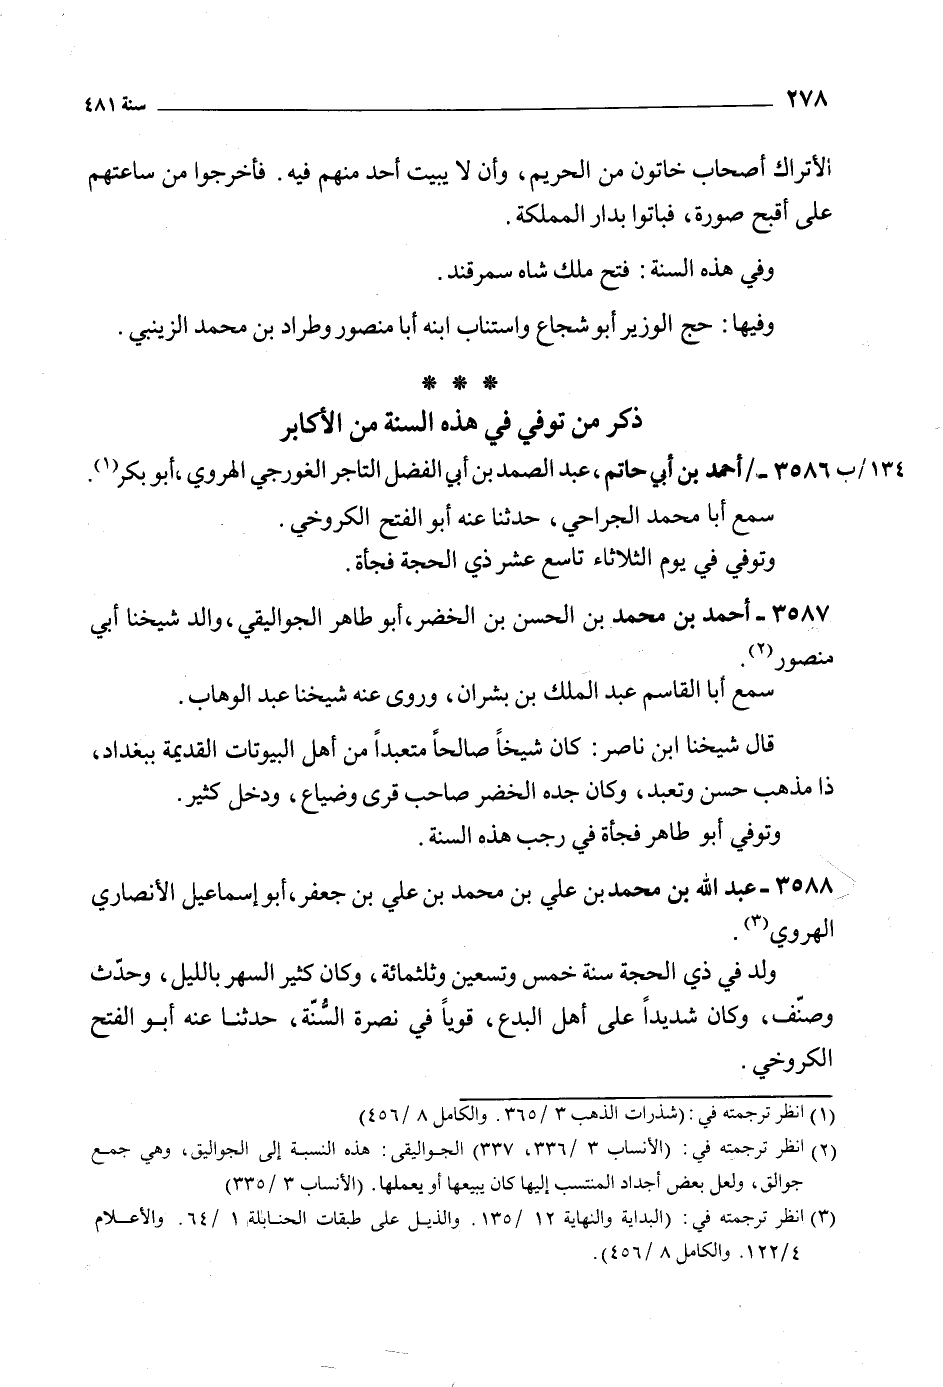 ٢٧٨ سنة ٤٨١
الأتراك أصحاب خاتون من الحريم، وأن لا يبيت أحد منهم فيه. فأخرجوا من ساعتهم
على أقبح صورة، فباتوا بدار المملكة.
وفي هذه السنة: فتح ملك شاه سمرقند.
وفيها: حج الوزير أبو شجاع واستناب ابنه أبا منصور وطراد بن محمد الزينبي.
* * *
ذكر من توفي في هذه السنة من الأكابر
١٣٤/ب ٣٥٨٦ ـ/أحمد بن أبي حاتم، عبد الصمد بن أبي الفضل التاجر الغورجي الهروي، أبو بكر(١).
سمع أبا محمد الجراحي، حدثنا عنه أبو الفتح الكروخي.
وتوفي في يوم الثلاثاء تاسع عشر ذي الحجة فجأة.
٣٥٨٧ ـ أحمد بن محمد بن الحسن بن الخضر، أبو طاهر الجواليقي، والد شيخنا أبي
منصور(٢).
سمع أبا القاسم عبد الملك بن بشران، وروى عنه شيخنا عبد الوهاب.
قال شيخنا ابن ناصر: كان شيخاً صالحاً متعبداً من أهل البيوتات القديمة ببغداد،
ذا مذهب حسن وتعبد، وكان جده الخضر صاحب قرى وضياع، ودخل كثير.
وتوفي أبو طاهر فجأة في رجب هذه السنة.
٣٥٨٨ ـ عبد الله بن محمد بن علي بن محمد بن علي بن جعفر، أبو إسماعيل الأنصاري
الهروي(٣).
ولد في ذي الحجة سنة خمس وتسعين وثلثمائة، وكان كثير السهر بالليل، وحدّث
وصنّف، وكان شديداً على أهل البدع، قوياً في نصرة السُّنّة، حدثنا عنه أبو الفتح
الكروخي.
(١) انظر ترجمته في: (شذرات الذهب ٣/ ٣٦٥. والكامل ٨/ ٤٥٦)
(٢) انظر ترجمته في: (الأنساب ٣/ ٣٣٦، ٣٣٧) الجواليقى: هذه النسبة إلى الجواليق، وهي جمع
جوالق، ولعل بعض أجداد المنتسب إليها كان يبيعها أو يعملها. (الأنساب ٣/ ٣٣٥)
(٣) انظر ترجمته في: (البداية والنهاية ١٢/ ١٣٥. والذيل على طبقات الحنابلة ١/ ٦٤. والأعلام
٤/ ١٢٢. والكامل ٨/ ٤٥٦).